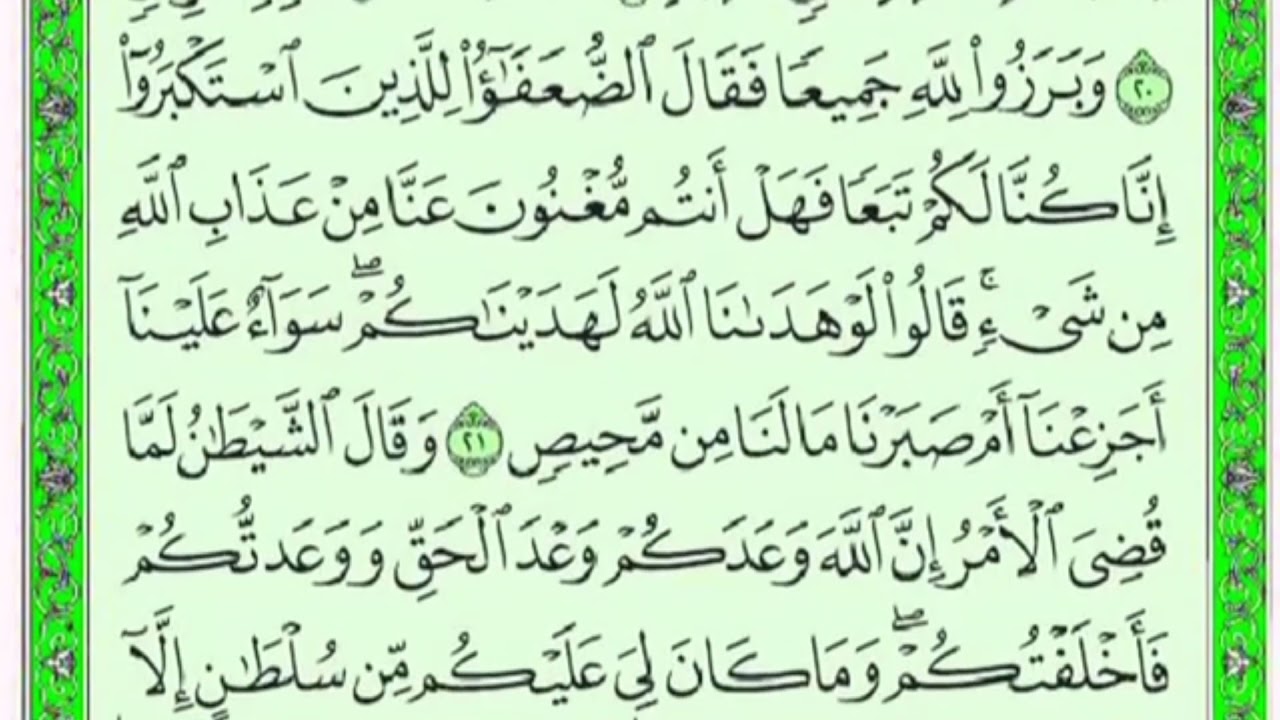 ٢٠ وَبَرَزُوا۟ لِلَّهِ جَمِيعًا فَقَالَ ٱلضُّعَفَـٰٓؤُا۟ لِلَّذِينَ ٱسْتَكْبَرُوٓا۟
إِنَّا كُنَّا لَكُمْ تَبَعًا فَهَلْ أَنتُم مُّغْنُونَ عَنَّا مِنْ عَذَابِ ٱللَّهِ
مِن شَىْءٍ ۚ قَالُوا۟ لَوْ هَدَىٰنَا ٱللَّهُ لَهَدَيْنَـٰكُمْ ۖ سَوَآءٌ عَلَيْنَآ
أَجَزِعْنَآ أَمْ صَبَرْنَا مَا لَنَا مِن مَّحِيصٍ ٢١ وَقَالَ ٱلشَّيْطَـٰنُ لَمَّا
قُضِىَ ٱلْأَمْرُ إِنَّ ٱللَّهَ وَعَدَكُمْ وَعْدَ ٱلْحَقِّ وَوَعَدتُّكُمْ
فَأَخْلَفْتُكُمْ ۖ وَمَا كَانَ لِىَ عَلَيْكُم مِّن سُلْطَـٰنٍ إِلَّآ